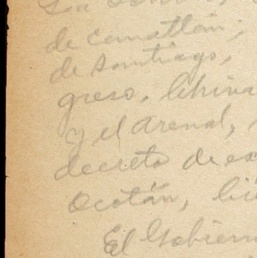 de camatlán;
de Santiago,
greso, China
y el arenal,
decreto de ex
Ocotán, li
El Gobiern